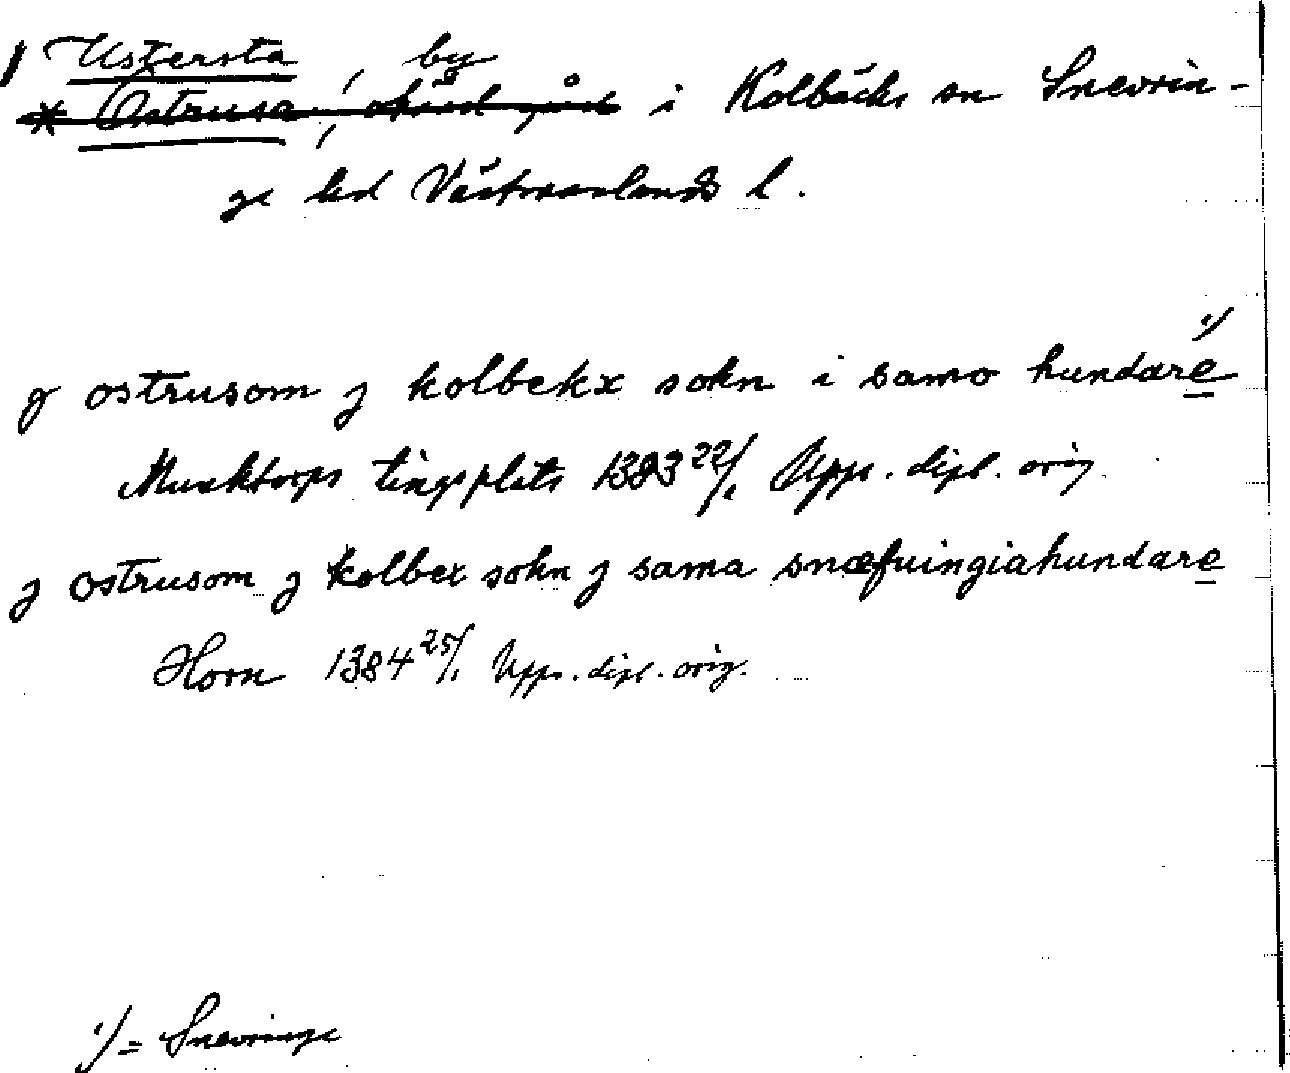 Ustersta, by
* Ostrusa, okänd gård i Kolbäcks sn Snevrin-
ge hd Västmanlands l.
j ostrusom j kolbekx sokn i samo hundare 1)
Munktorps tingsplats 1383 22/1 Upps. dipl. orig
j ostrusom j kolbex sokn j sama snæfuingiahundare
Horn 1384 25/1 Upps. dipl. orig.
1) = Snevringe